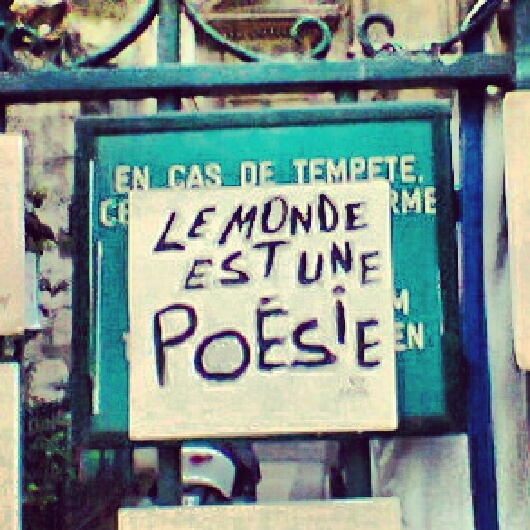 EN CAS DE TEMPETE,
CE RME
LE MONDE
EST UNE
POÉSIE
M
EN